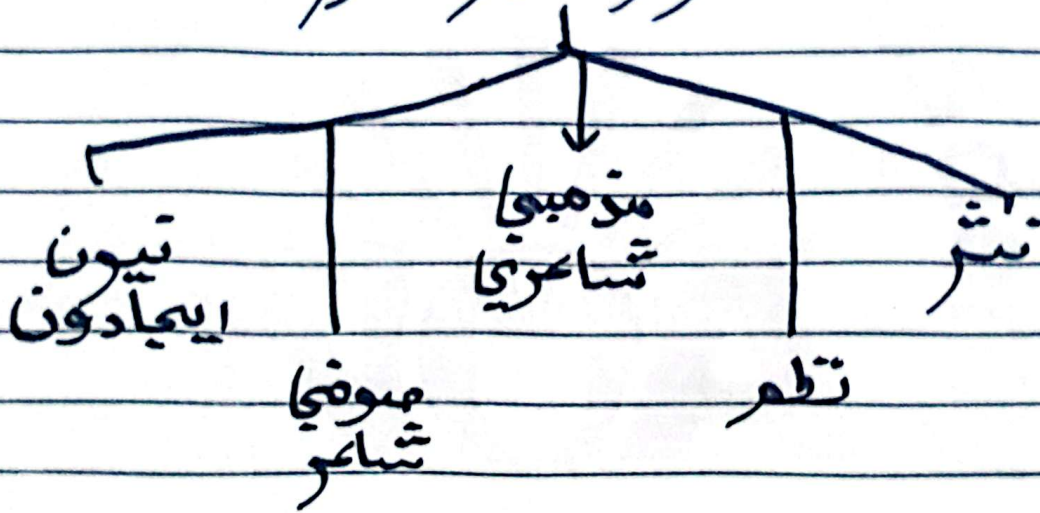 نثر
نظم
مذهبي
شاعري
صوفي
شاعر
نيون
ايجادون